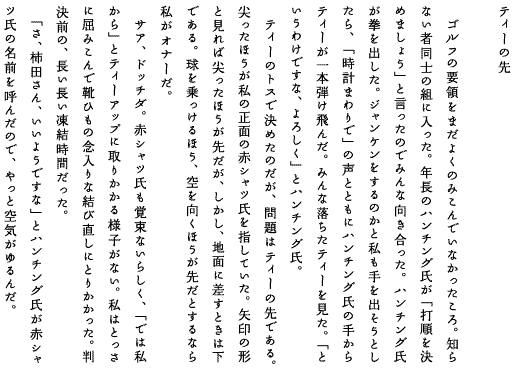 ティーの先
ゴルフの要領をまだよくのみこんでいなかったころ。知ら
ない者同士の組に入った。年長のハンチング氏が「打順を決
めましょう」と言ったのでみんな向き合った。ハンチング氏
が拳を出した。ジャンケンをするのかと私も手を出そうとし
たら、「時計まわりで」の声とともにハンチング氏の手から
ティーが一本弾け飛んだ。みんな落ちたティーを見た。「と
いうわけですな、よろしく」とハンチング氏。
ティーのトスで決めたのだが、問題はティーの先である。
尖ったほうが私の正面の赤シャツ氏を指していた。矢印の形
と見れば尖ったほうが先だが、しかし、地面に差すときは下
である。球を乗っけるほう、空を向くほうが先だとするなら
私がオナーだ。
サア、ドッチダ。赤シャツ氏も覚束ないらしく、「では私
から」とティーアップに取りかかる様子がない。私はとっさ
に屈みこんで靴ひもの念入りな結び直しにとりかかった。判
決前の、長い長い凍結時間だった。
「さ、柿田さん、いいようですな」とハンチング氏が赤シャ
ツ氏の名前を呼んだので、やっと空気がゆるんだ。